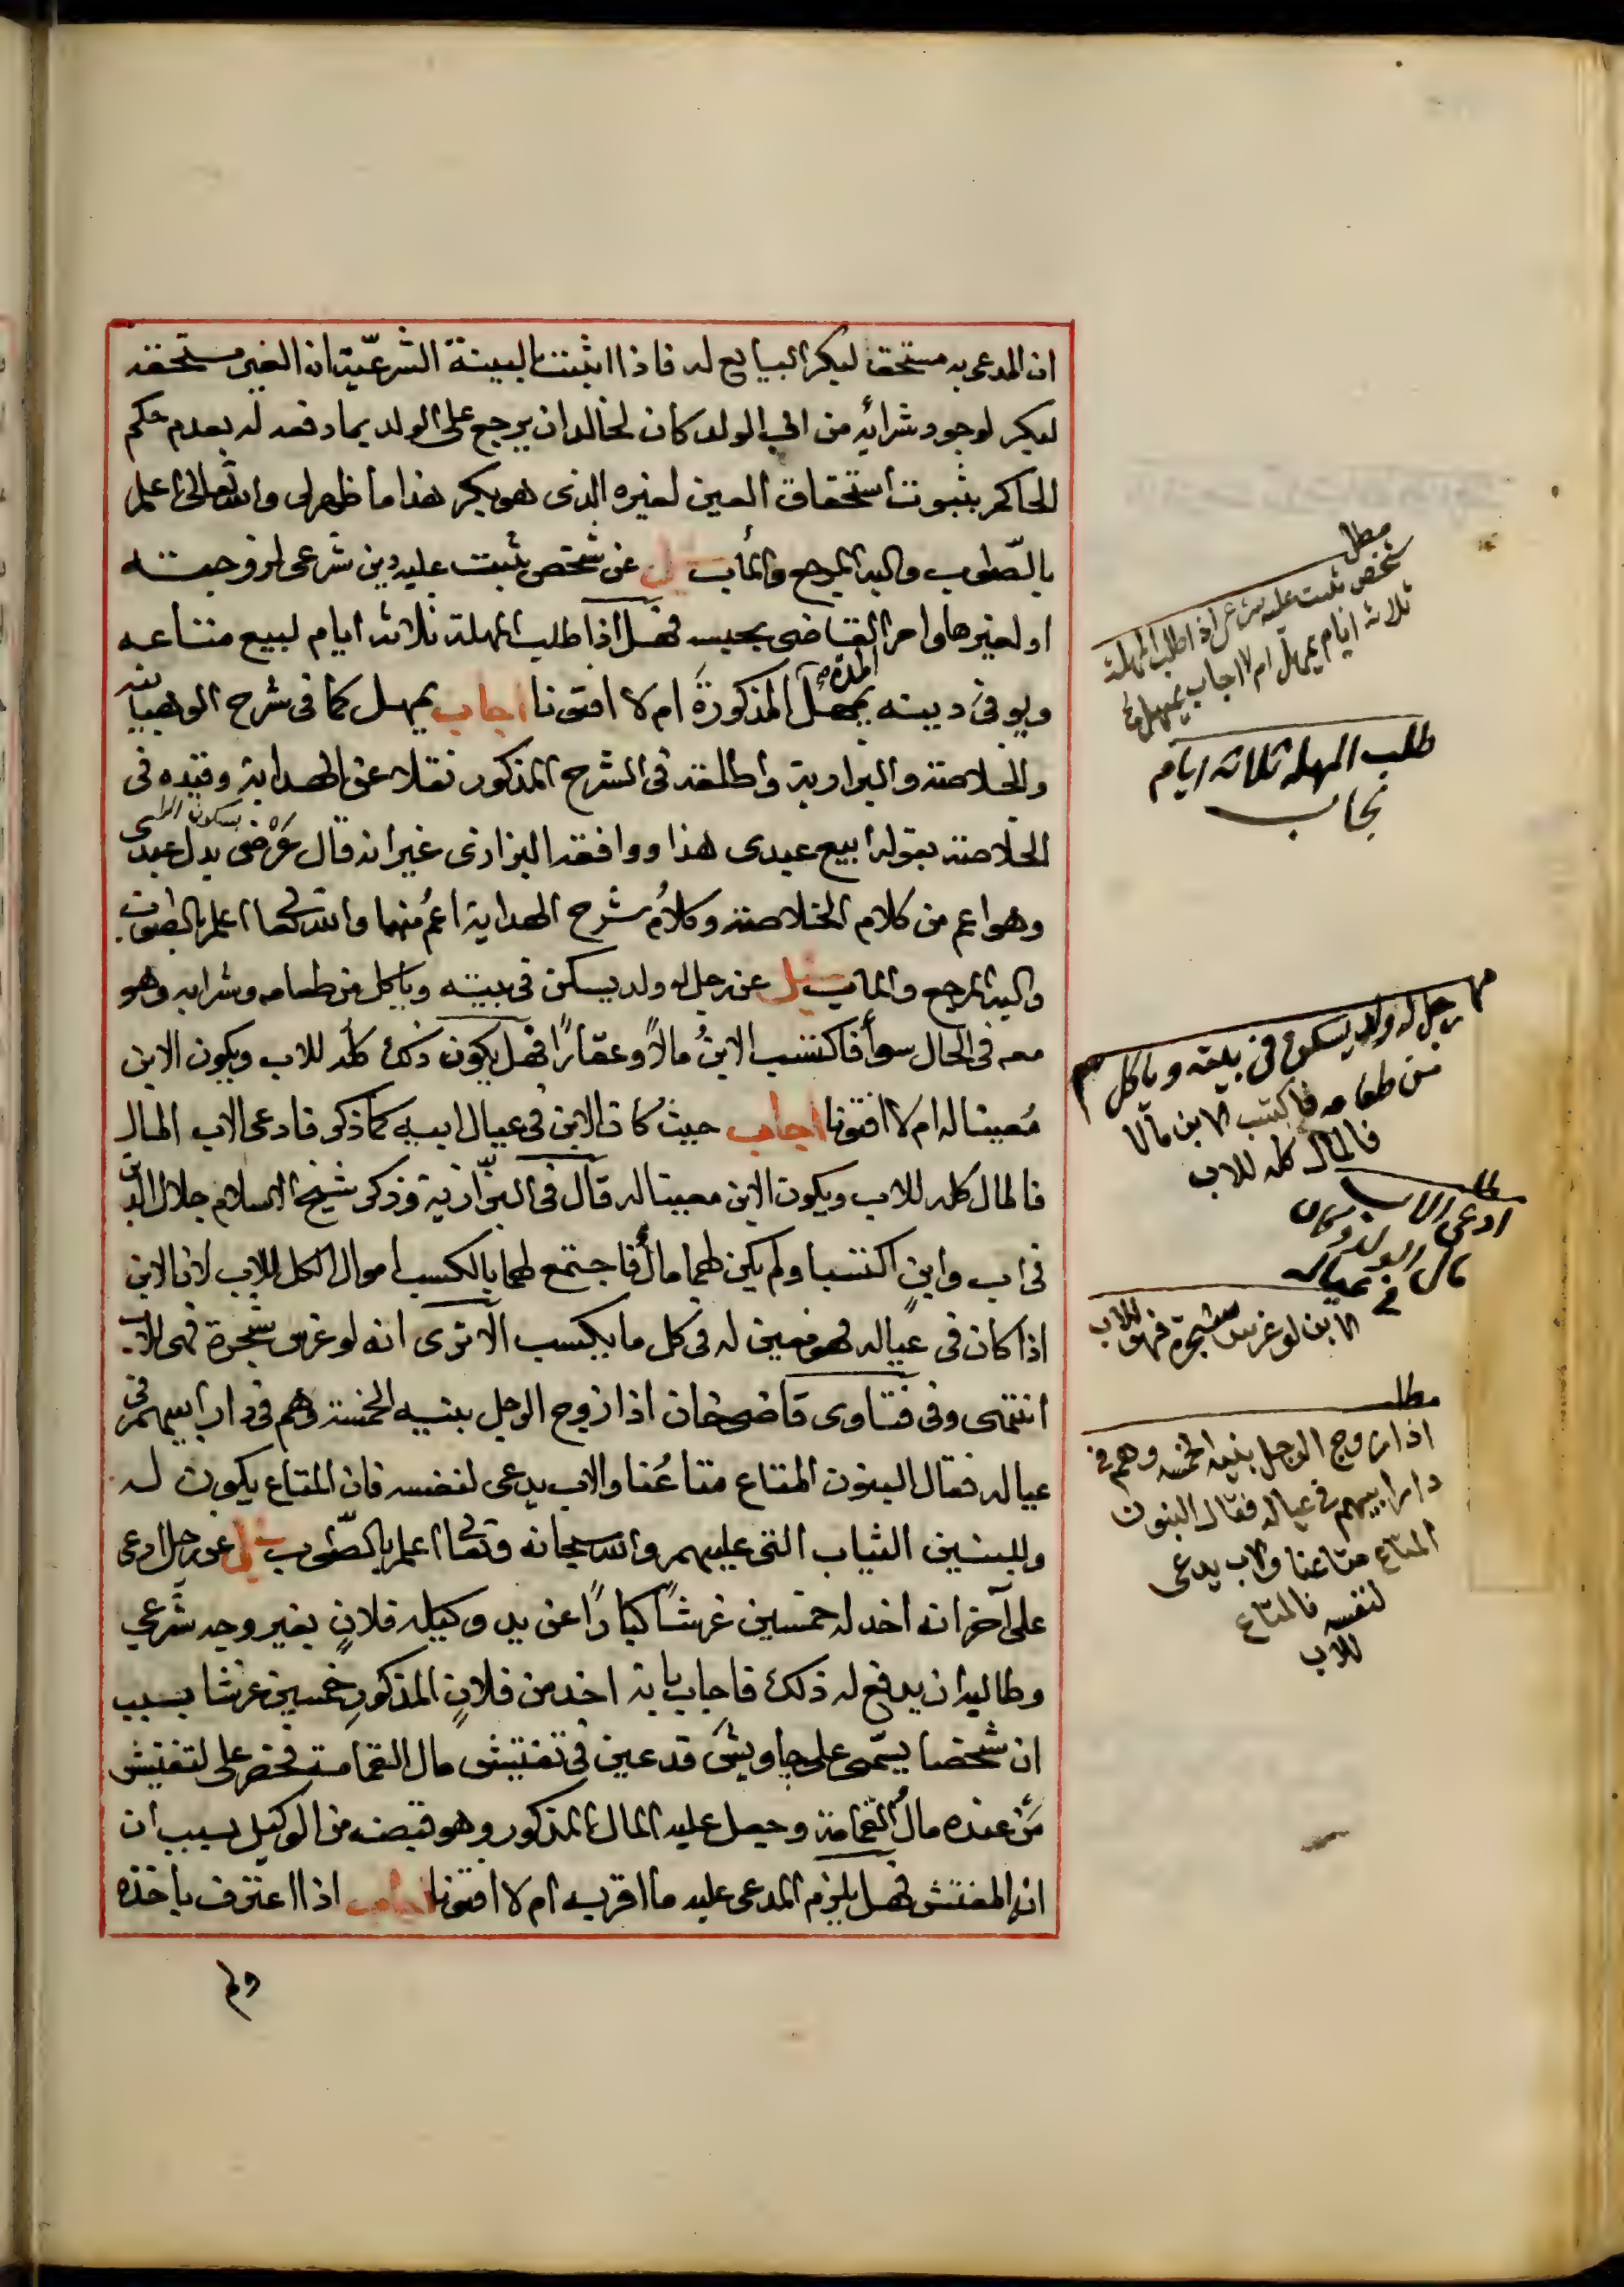 ان المدعى به مستحق لبكر البايع له فاذا اثبت بالبينة الشرعية ان الغير مستحقه
لبكر لوجود شرائه من ابي الولد كان لخالد ان يرجع على الولد بما دفعه له بعدم حكم
الحاكم بثبوت استحقاق العين لغيره الذى هو بكر هذا ما ظهر لى والله تعالى اعلم
بالصّواب واليه المرجع والمأب سئل عن شخص ثبت عليه دين شرعى لزوجته
او لغيرها وامر القاضى بحبسه فهل اذا طلب المهلة ثلاثة ايام لبيع متاعه
ويوفى دينه يمهل المدة المذكورة ام لا افتونا اجاب يمهل كما فى شرح الوهبانيه
والخلاصة والبزازية واطلقه فى الشرح المذكور نقلا عن الهداية وقيده فى
الخلاصة بقوله ابيع عبدى هذا ووافقه البزازى غير انه قال عَرْضى بدل عبدى
بسكون الرا
وهو اعم من كلام الخلاصة وكلامُ شرح الهداية اعمُ منهما والله تعالى اعلم بالصواب
واليه المرجع والماب سئل عن رجل له ولد يسكن فى بيته وياكل من طعامه وشرابه وهو
معه فى الحال سوأ فاكتسب الابنُ مالاً وعقاراً فهل يكون ذلك كله للاب ويكون الابن
مُعينا له ام لا افتونا اجاب حيث كان الابن فى عيال ابيه كما ذكر فادعى الاب المال
فالمال كله للاب ويكون الابن معينا له قال فى البزّازية وذكر شيخ الاسلام جلال الدين
فى اب وابنٍ اكتسبا ولم يكن لهما مالٌ فاجتمع لهما بالكسب اموال الكل للاب لان الابن
اذا كان فى عياله فهو معين له فى كل ما يكتسب الا ترى انه لو غرس شجرة فهى للاب
انتهى وفى فتاوى قاضيخان اذا زوج الرجل بنيه الخمسة وهم فى دار ابيهم فى
عياله فقال البنون المتاع متاعُنا والاب يدعى لنفسه فان المتاع يكون له
وللبنين الثياب التى عليهم والله سبحانه وتعالى اعلم بالصّواب سئل عن رجل ادعى
على آخر انه اخد له خمسين غرشاً كباراً عن يد وكيله فلانٍ بغير وجه شرعي
وطالبه ان يدفع له ذلك فاجاب بانه اخد من فلانٍ المذكورِ خمسين غرشا بسبب
ان شخصا يسمّى على جاويش قد عين فى تفتيش مال القمامة فحضر على لتفتيش
مَن عنده مالُ القمامة وحصل عليه المال المذكور وهو قبضه من الوكيل بسبب ان
انه المفتش فهل يلزم المدعى عليه ما اقر به ام لا افتونا اجاب اذا اعترف باخذه
ولم
مطلب
شخص ثبت عليه شرعى اذا طلب المهلة
ثلاثة ايام يمهل ام لا اجاب يمهل
طلب المهله ثلاثة ايام
يجاب
رجل له ولد يسكن فى بيته وياكل
من طعامه فاكتسب الابن مالا
فالمال كله للاب
مطلب
ادعى الاب
مال الولد وكان
فى عياله
الابن لو غرس شجرة فهى للاب
مطلب
اذا زوج الرجل بنيه الخمسه وهم فى
دار ابيهم فى عياله فقال البنون
المتاع متاعنا والاب يدعى
لنفسه فالمتاع
للاب